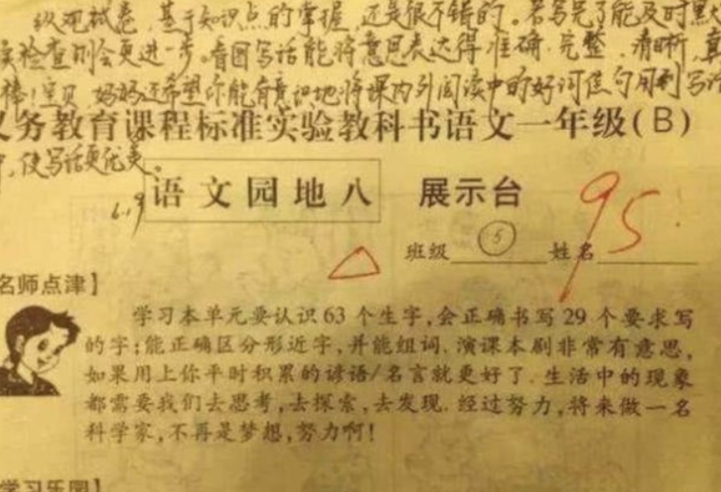 纵观试卷,基于知识点的掌握,还是很不错的。若写完了能及时
检查则会更进一步。看图写话能将意思表达得准确、完整、清晰,真
棒!宝贝,妈妈还希望你能有意识地将课内外阅读中的好词佳句用到写话
义务教育课程标准实验教科书语文一年级(B)
中,使写话更优美。
6.19
语文园地八 展示台
95
班级 5 姓名
名师点津】
学习本单元要认识63个生字,会正确书写29个要求写
的字;能正确区分形近字,并能组词.演课本剧非常有意思,
如果用上你平时积累的谚语/名言就更好了.生活中的现象
都需要我们去思考,去探索,去发现.经过努力,将来做一名
科学家,不再是梦想,努力啊!
学习乐园】